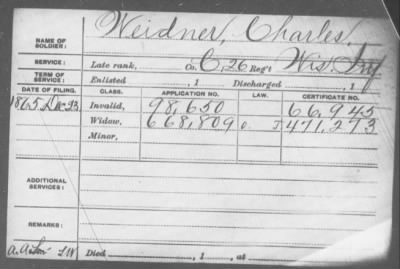 NAME OF SOLDIER: Weidner, Charles.
SERVICE: Late rank, Co. C, 26 Reg't Wis. Inf
TERM OF SERVICE: Enlisted , 1 Discharged , 1
DATE OF FILING. CLASS. APPLICATION NO. LAW. CERTIFICATE NO.
1865, Dec 23 Invalid, 98,650 66,945
Widow, 668,809 J 471,273
Minor,
ADDITIONAL SERVICES:
REMARKS:
Died , 1 , at